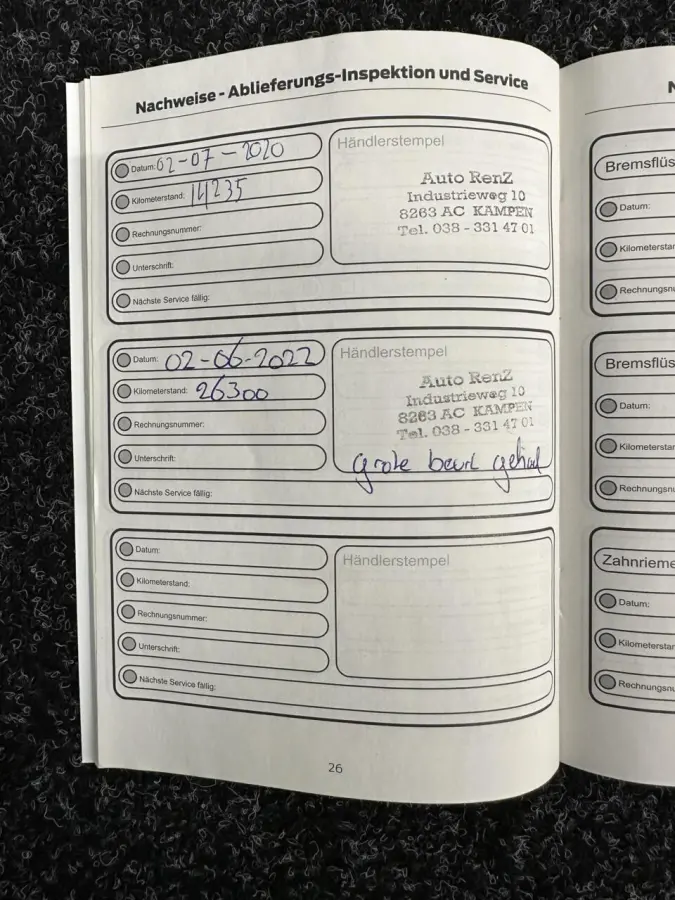 Nachweise - Ablieferungs-Inspektion und Service
Datum: 02-07-2020
Kilometerstand: 14235
Rechnungsnummer:
Unterschrift:
Nächste Service fällig:
Händlerstempel
Auto RenZ
Industrieweg 10
8263 AC KAMPEN
Tel. 038 - 331 47 01
Datum: 02-06-2022
Kilometerstand: 26300
Rechnungsnummer:
Unterschrift:
Nächste Service fällig:
Händlerstempel
Auto RenZ
Industrieweg 10
8263 AC KAMPEN
Tel. 038 - 331 47 01
grote beurt gehad
Datum:
Kilometerstand:
Rechnungsnummer:
Unterschrift:
Nächste Service fällig:
Händlerstempel
26
N
Bremsflüs
Datum:
Kilometerstan
Rechnungsnu
Bremsflüs
Datum:
Kilometerstan
Rechnungsnu
Zahnrieme
Datum:
Kilometerstan
Rechnungsnu